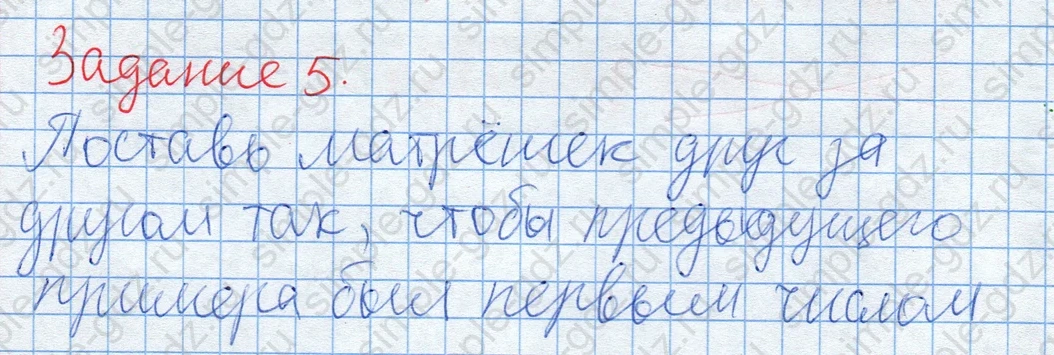 Задание 5.
Поставь матрёшек друг за
другом так, чтобы предыдущего
примера был первым числом